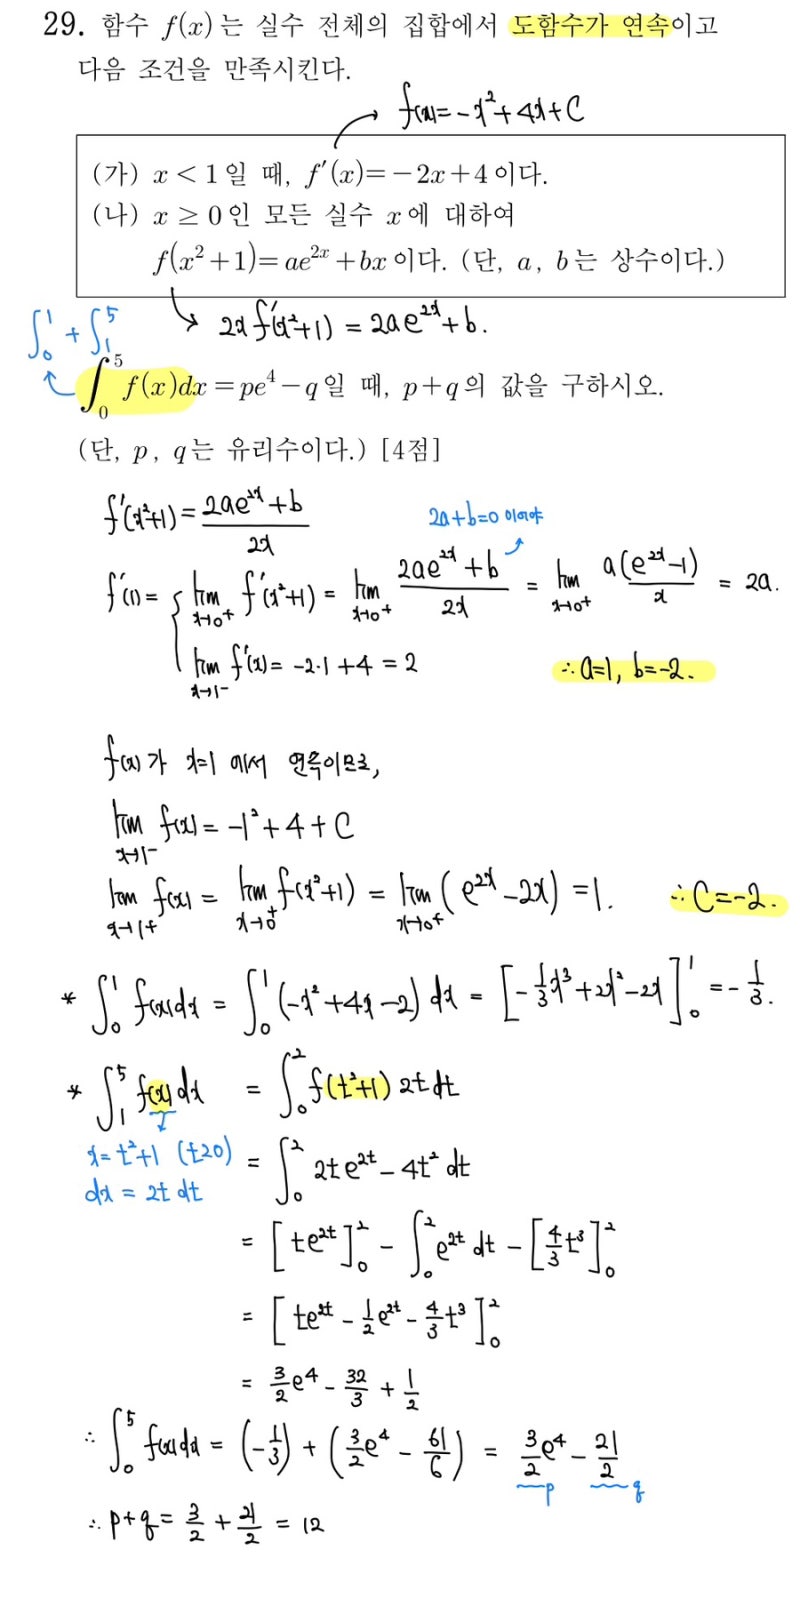 29. 함수 f(x)는 실수 전체의 집합에서 도함수가 연속이고
다음 조건을 만족시킨다.
f(x)=-x²+4x+C
(가) x<1일 때, f′(x)=-2x+4이다.
(나) x≥0인 모든 실수 x에 대하여
f(x²+1)=ae^{2x}+bx이다. (단, a, b는 상수이다.)
∫₀¹+∫₁⁵
2x f′(x²+1) = 2ae^{2x}+b.
∫₀⁵ f(x)dx=pe⁴-q일 때, p+q의 값을 구하시오.
(단, p, q는 유리수이다.) [4점]
f′(x²+1)=\frac{2ae^{2x}+b}{2x}
2a+b=0 이어야
f′(1)= { lim_{x→0+} f′(x²+1) = lim_{x→0+} \frac{2ae^{2x}+b}{2x} = lim_{x→0+} \frac{a(e^{2x}-1)}{x} = 2a.
lim_{x→1-} f′(x)= -2·1+4=2
∴a=1, b=-2.
f(x)가 x=1에서 연속이므로,
lim_{x→1-} f(x)= -1²+4+C
lim_{x→1+} f(x) = lim_{x→0+} f(x²+1) = lim_{x→0+} (e^{2x}-2x) = 1. ∴C=-2.
* ∫₀¹ f(x)dx = ∫₀¹ (-x²+4x-2)dx = [-\frac{1}{3}x³+2x²-2x]₀¹ = -\frac{1}{3}.
* ∫₁⁵ f(x)dx = ∫₀² f(t²+1) 2t dt
x=t²+1 (t≥0)
= ∫₀² 2te^{2t}-4t² dt
dx = 2t dt
= [te^{2t}]₀² - ∫₀² e^{2t} dt - [\frac{4}{3}t³]₀²
= [te^{2t} - \frac{1}{2}e^{2t} - \frac{4}{3}t³]₀²
= \frac{3}{2}e⁴ - \frac{32}{3} + \frac{1}{2}
∴ ∫₀⁵ f(x)dx = (-\frac{1}{3}) + (\frac{3}{2}e⁴ - \frac{61}{6}) = \frac{3}{2}e⁴ - \frac{21}{2}
p q
∴ p+q = \frac{3}{2} + \frac{21}{2} = 12